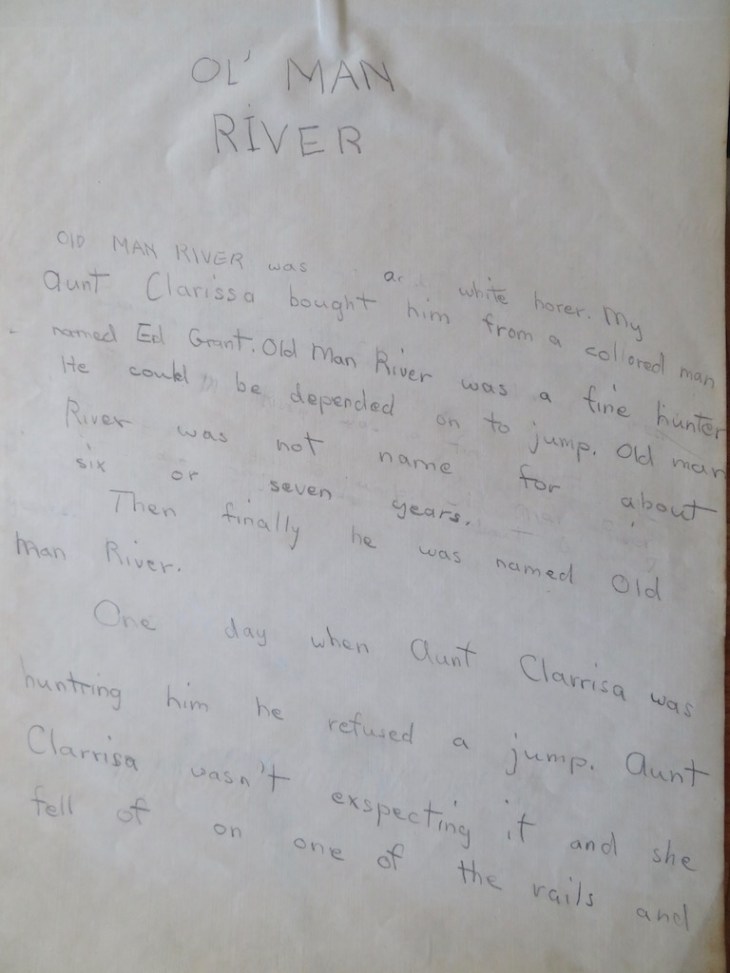 OL' MAN
RIVER
Old MAN RIVER was a white horer. My
aunt Clarissa bought him from a collored man
named Ed Grant. Old Man River was a fine hunter
He could be depended on to jump. Old man
River was not name for about
six or seven years.
Then finally he was named Old
Man River.
One day when Aunt Clarrisa was
huntring him he refused a jump. Aunt
Clarrisa wasn't exspecting it and she
fell of on one of the rails and